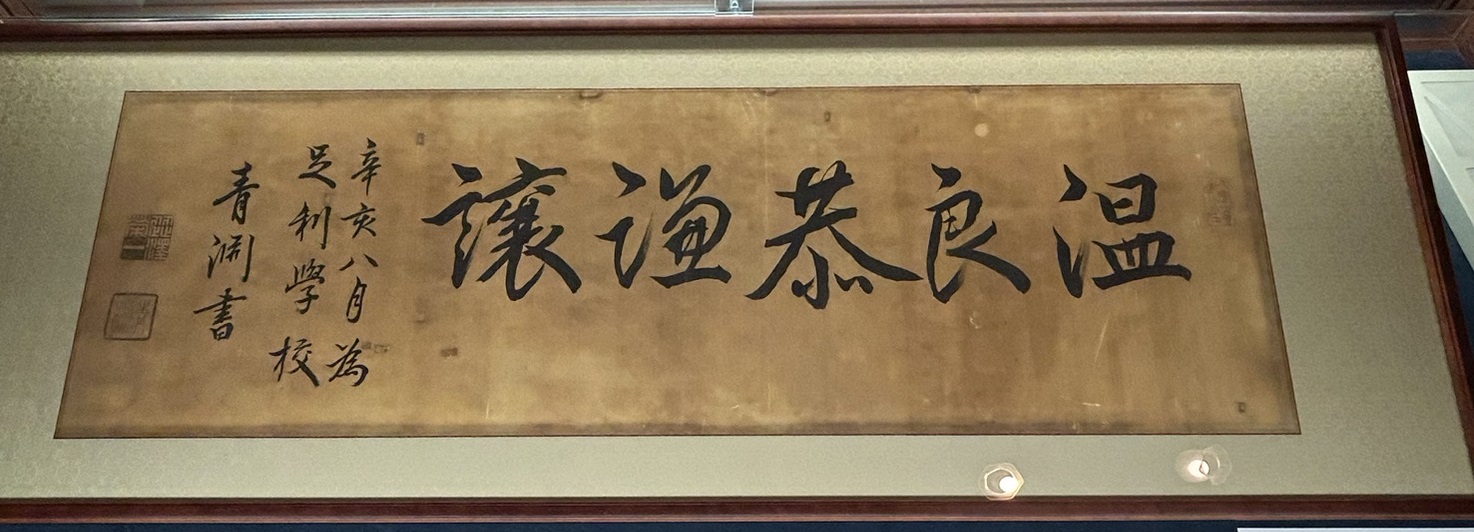 温良恭謙讓
辛亥八月為
足利學校
青淵書